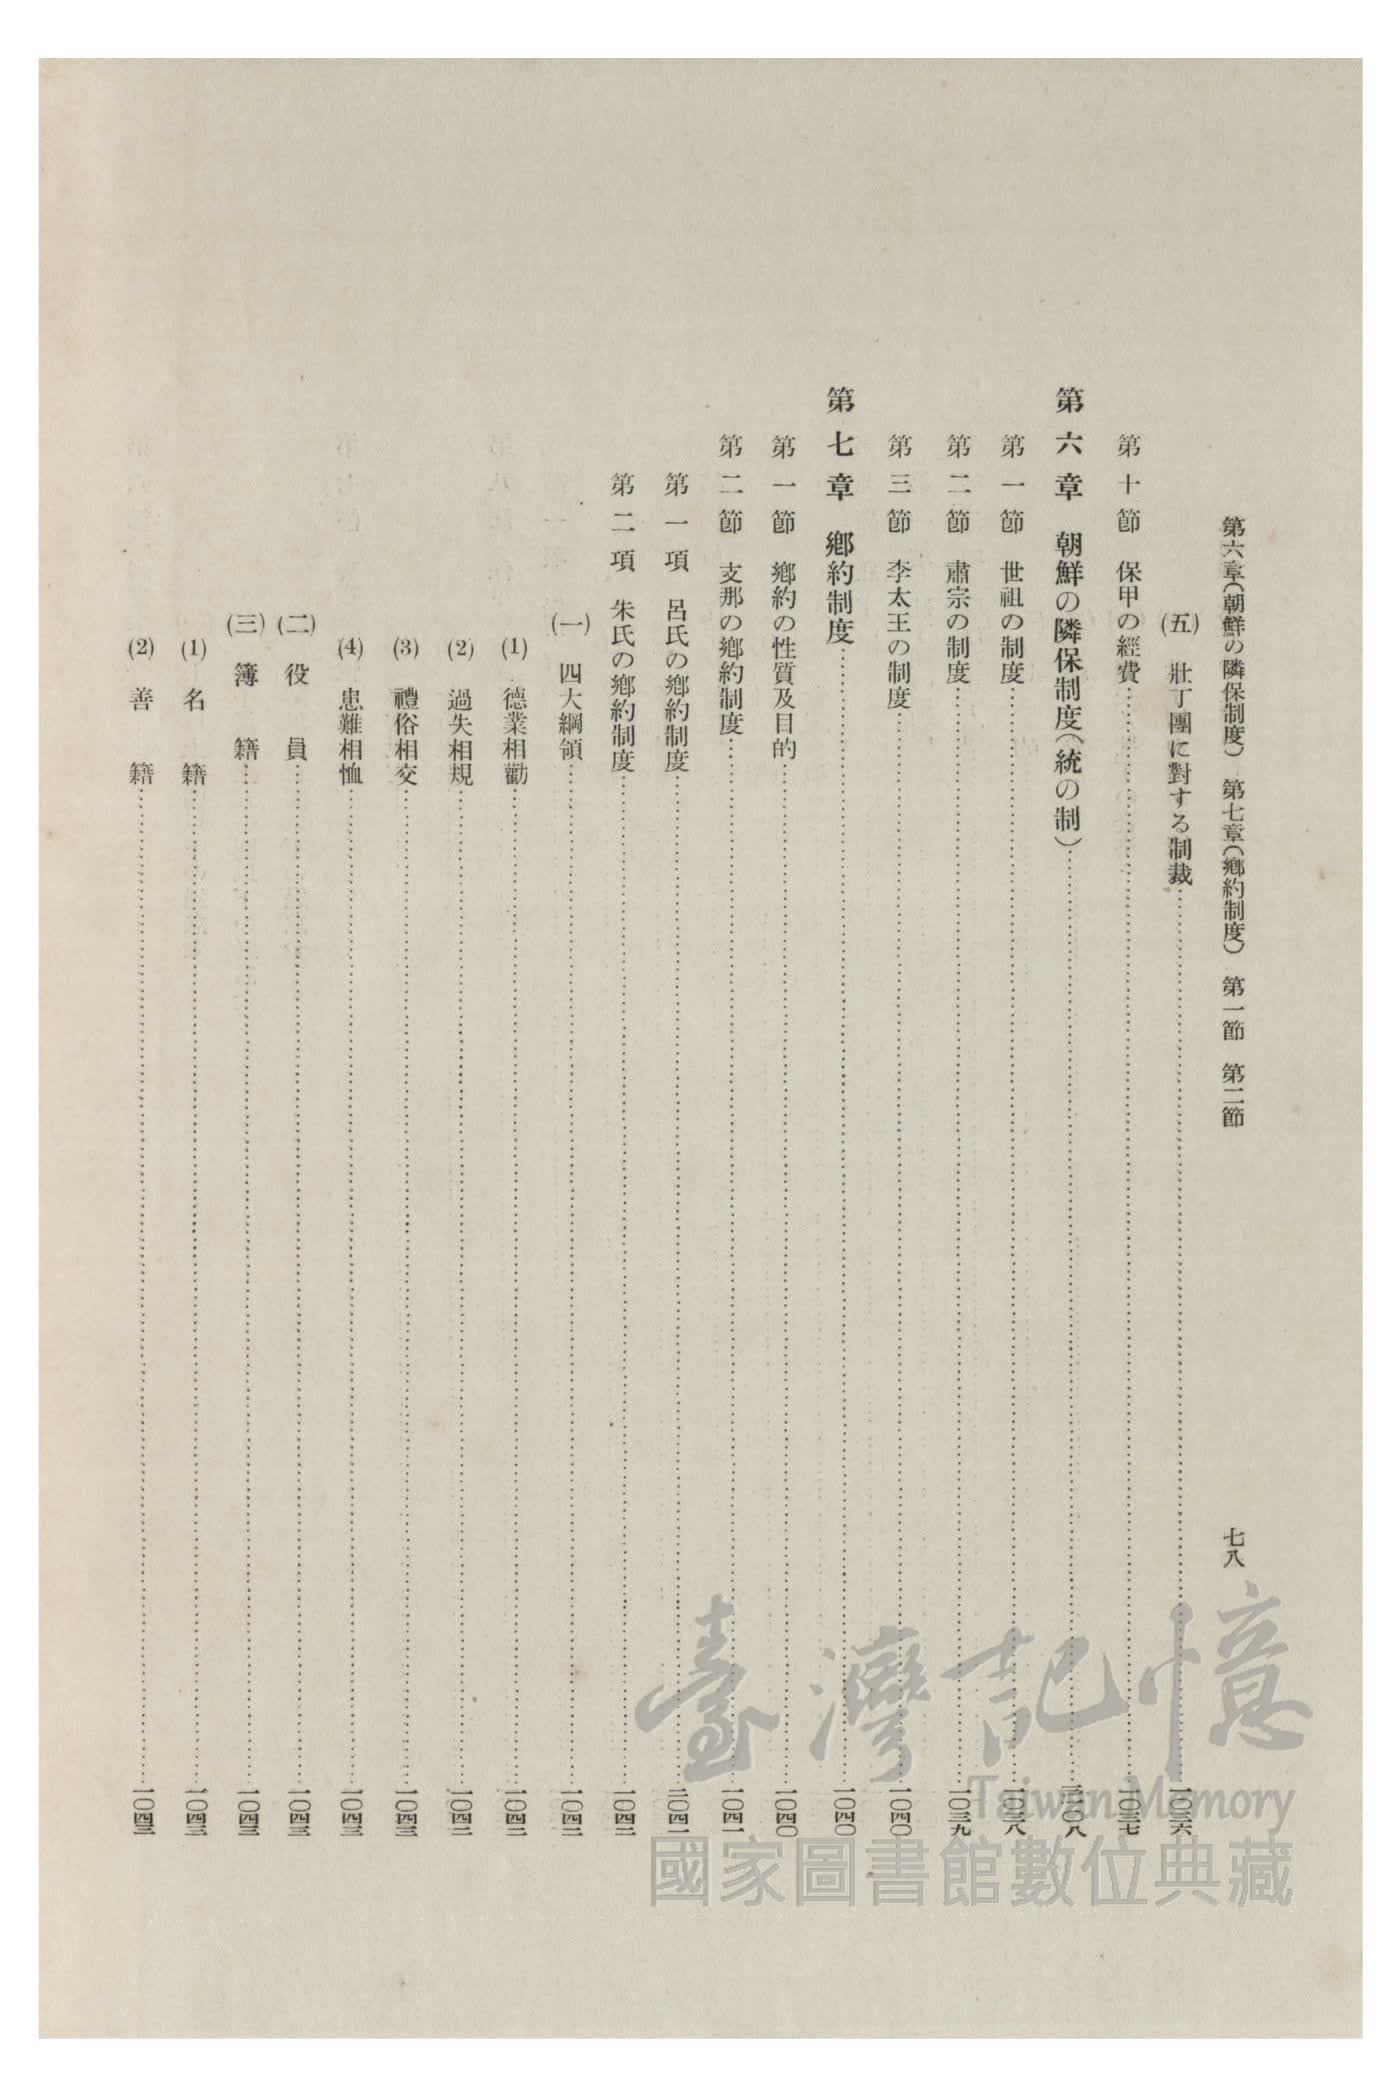 第六章（朝鮮の隣保制度）　第七章（鄕約制度）　第一節　第二節　七八
(五)　壯丁團に對する制裁……一〇三六
第十節　保甲の經費……一〇三七
第六章　朝鮮の隣保制度（統の制）……一〇三八
第一節　世祖の制度……一〇三八
第二節　肅宗の制度……一〇三九
第三節　李太王の制度……一〇四〇
第七章　鄕約制度……一〇四〇
第一節　鄕約の性質及目的……一〇四〇
第二節　支那の鄕約制度……一〇四一
第一項　呂氏の鄕約制度……一〇四一
第二項　朱氏の鄕約制度……一〇四二
(一)　四大綱領……一〇四二
(1)　德業相勸……一〇四二
(2)　過失相規……一〇四二
(3)　禮俗相交……一〇四三
(4)　患難相恤……一〇四三
(二)　役員……一〇四三
(三)　簿籍……一〇四三
(1)　名籍……一〇四三
(2)　善籍……一〇四三
臺灣記憶
Taiwan Memory
國家圖書館數位典藏